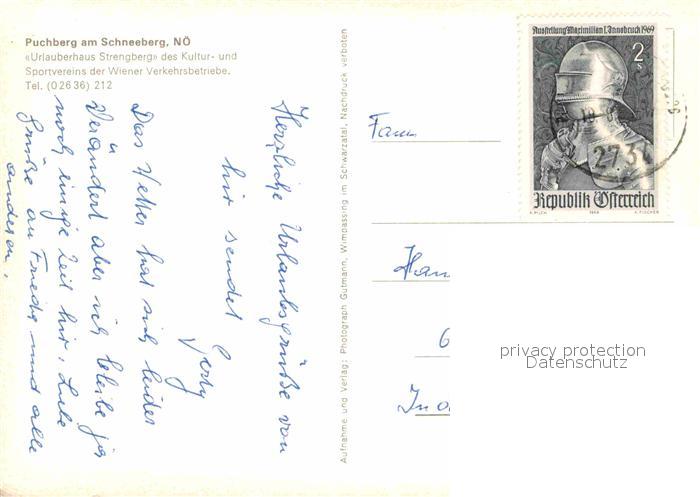 Puchberg am Schneeberg, NÖ
«Urlauberhaus Strengberg» des Kultur- und
Sportvereins der Wiener Verkehrsbetriebe.
Tel. (0 26 36) 212
Herzliche Urlaubsgrüße von
hir sendet
Gerty
Das Wetter hat sich leider
Verändert aber ich bleibe ja
noch einige Zeit hir. Liebe
Grüße an Friedr. und alle
anderen.
Aufnahme und Verlag: Photograph Gutmann, Wimpassing im Schwarzatal. Nachdruck verboten
Ausstellung Maximilian I. Innsbruck 1969
2 S
Republik Österreich
A. PILCH 1969 A. FISCHER
273
Fam
Han
6
privacy protection
Datenschutz